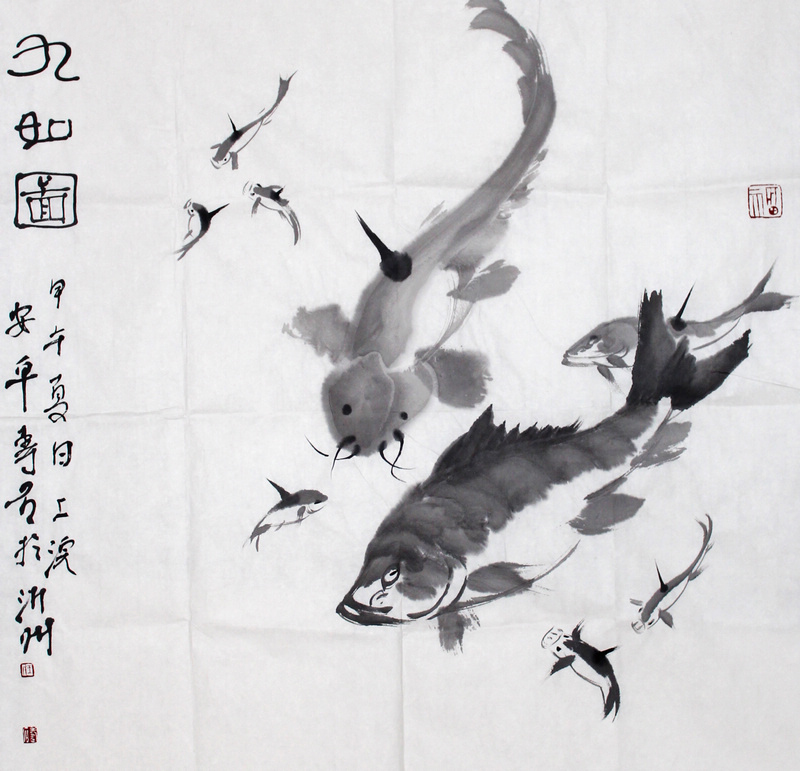 九如圖
甲午夏日上浣
安於沂州
福